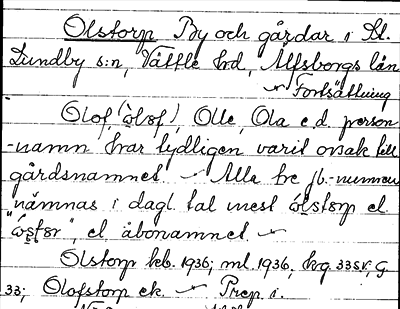 Olstorp By och gårdar i St.
Lundby s:n, Vättle hd, Älfsborgs län
Fortsättning
Olof (òlof), Olle, Ola e.d. person
-namn har tydligen varit orsak till
gårdsnamnet Alla tre jb.-numren
nämnas i dagl. tal mest
el. åbonamnet
Olstorp keb. 1936; ml. 1936; hrg. 33SV, G
33; Olofstorp ek. Prep. i.